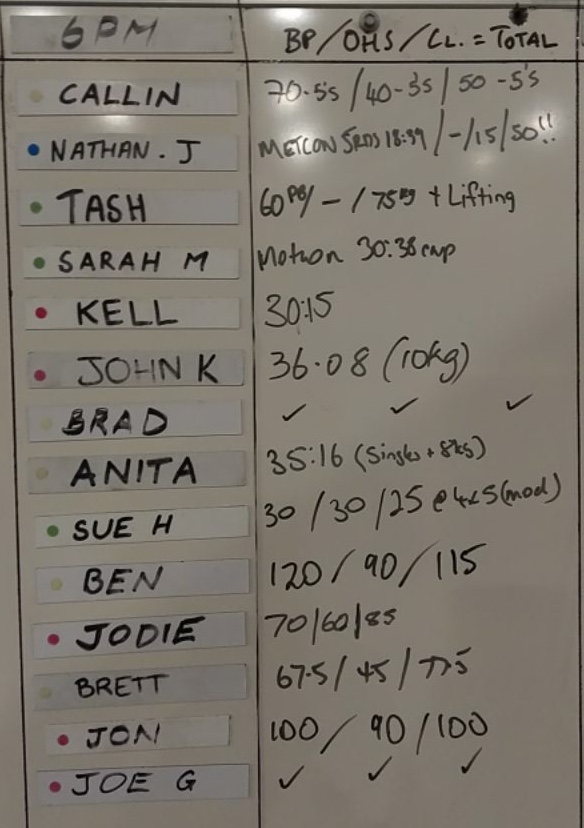 6PM BP/OHS/CL. = TOTAL
CALLIN 70-5's / 40-3's / 50-5's
NATHAN. J METCON 5RDS 18:39 / - / 15 / 50!!
TASH 60 / - / 75kg + Lifting
SARAH M 30:38
KELL 30:15
JOHN K 36.08 (10kg)
BRAD ✓ ✓ ✓
ANITA 35:16 (Singles + 8kg)
SUE H 30 / 30 / 25 @ (mod)
BEN 120 / 90 / 115
JODIE 70/60/85
BRETT 67.5 / 45 / 77.5
JON 100 / 90 / 100
JOE G ✓ ✓ ✓